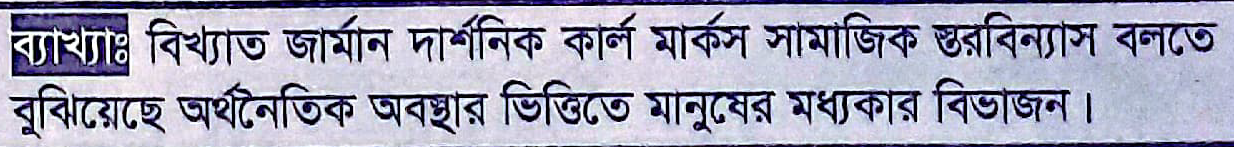 ব্যাখ্যাঃ বিখ্যাত জার্মান দার্শনিক কার্ল মার্কস সামাজিক স্তরবিন্যাস বলতে
বুঝিয়েছে অর্থনৈতিক অবস্থার ভিত্তিতে মানুষের মধ্যকার বিভাজন।